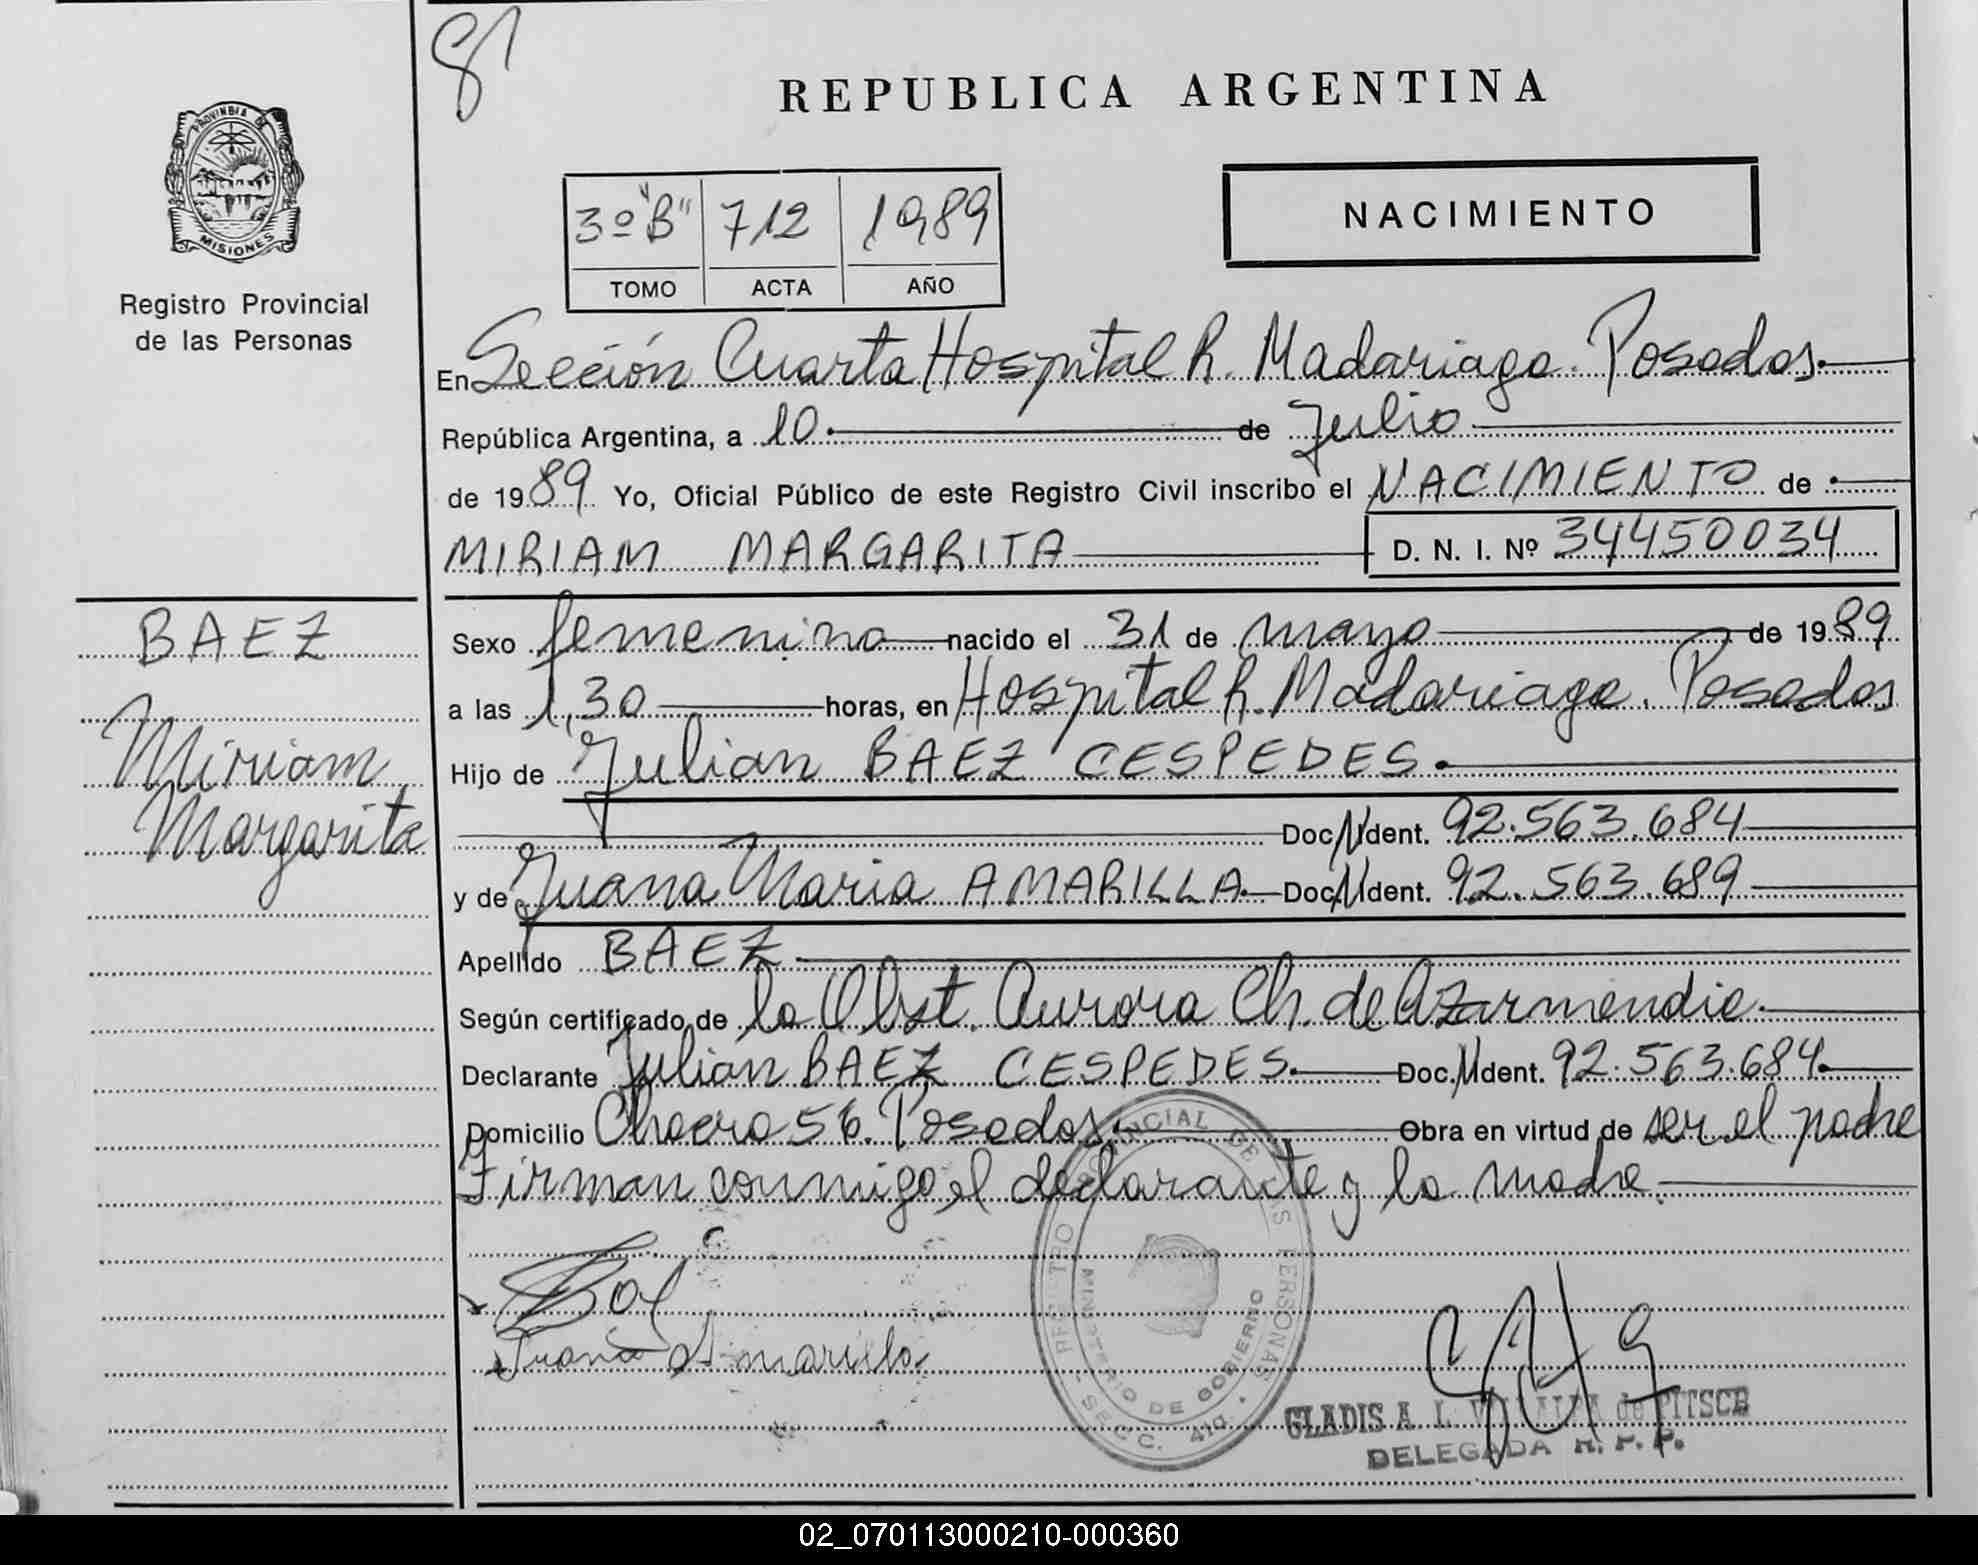 81
REPUBLICA ARGENTINA
PROVINCIA DE
MISIONES
Registro Provincial
de las Personas
3º "B" 712 1989
TOMO ACTA AÑO
NACIMIENTO
En Sección Cuarta Hospital R. Madariaga. Posadas.
República Argentina, a 10 de Julio
de 1989 Yo, Oficial Público de este Registro Civil inscribo el NACIMIENTO de
MIRIAM MARGARITA D. N. I. Nº 34450034
BAEZ
Miriam
Margarita
Sexo femenino nacido el 31 de mayo de 1989
a las 1,30 horas, en Hospital R. Madariaga. Posadas
Hijo de Julian BAEZ CESPEDES.
Doc. Ident. 92.563.684
y de Juana Maria AMARILLA Doc. Ident. 92.563.689
Apellido BAEZ
Según certificado de la Obst. Aurora Ch. de Azarmendia.
Declarante Julian BAEZ CESPEDES. Doc. Ident. 92.563.684.
Domicilio Chacra 56. Posadas. Obra en virtud de ser el padre
Firman conmigo el declarante y la madre.
Juana Amarilla
REGISTRO PROVINCIAL DE LAS PERSONAS
MINISTERIO DE GOBIERNO
SECC. 4ta.
GLADIS A. L. de PITSCH
DELEGADA R. P. P.
02_070113000210-000360